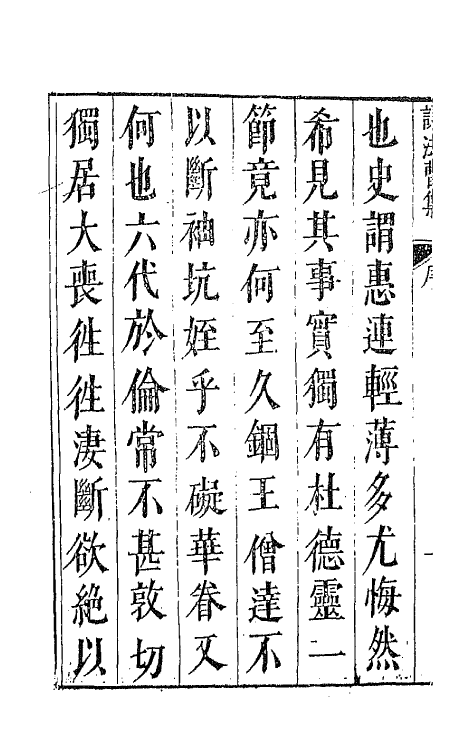 謝法曹集 序 一
也史謂惠連輕薄多尤悔然
希見其事實獨有杜德靈二
節竟亦何至久錮王僧達不
以斷袖坑姪乎不礙華眷又
何也六代於倫常不甚敦切
獨居大喪徃徃淒斷欲絶以